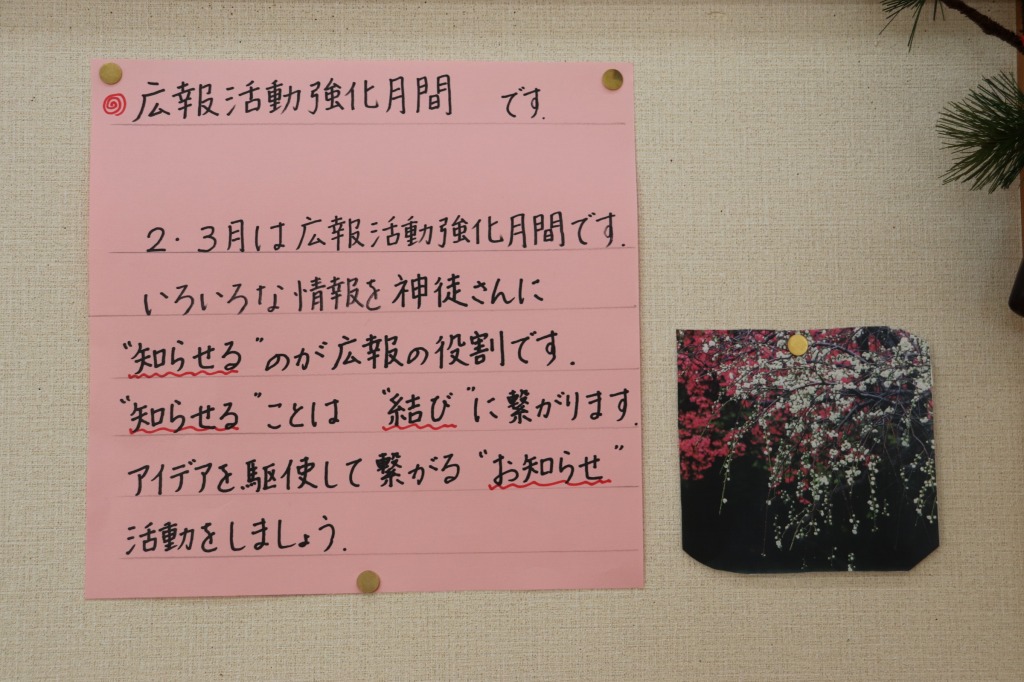 広報活動強化月間 です.
2・3月は広報活動強化月間です.
いろいろな情報を神徒さんに
“知らせる”のが広報の役割です.
“知らせる”ことは “結び”に繋がります.
アイデアを駆使して繋がる“お知らせ”
活動をしましょう.